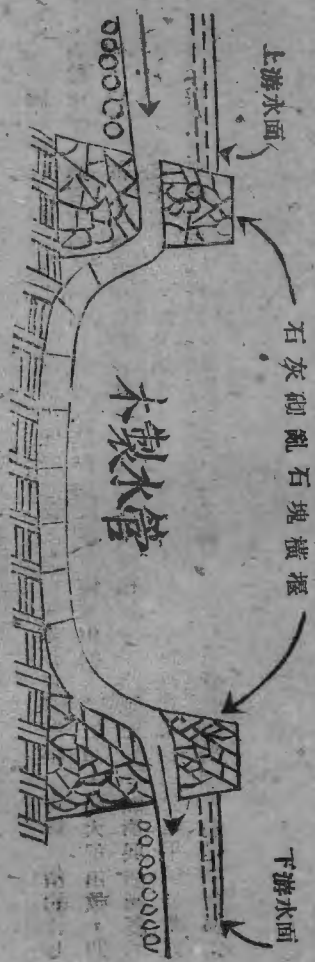 上游水面
石灰砌亂石塊橫堰
木製水管
下游水面